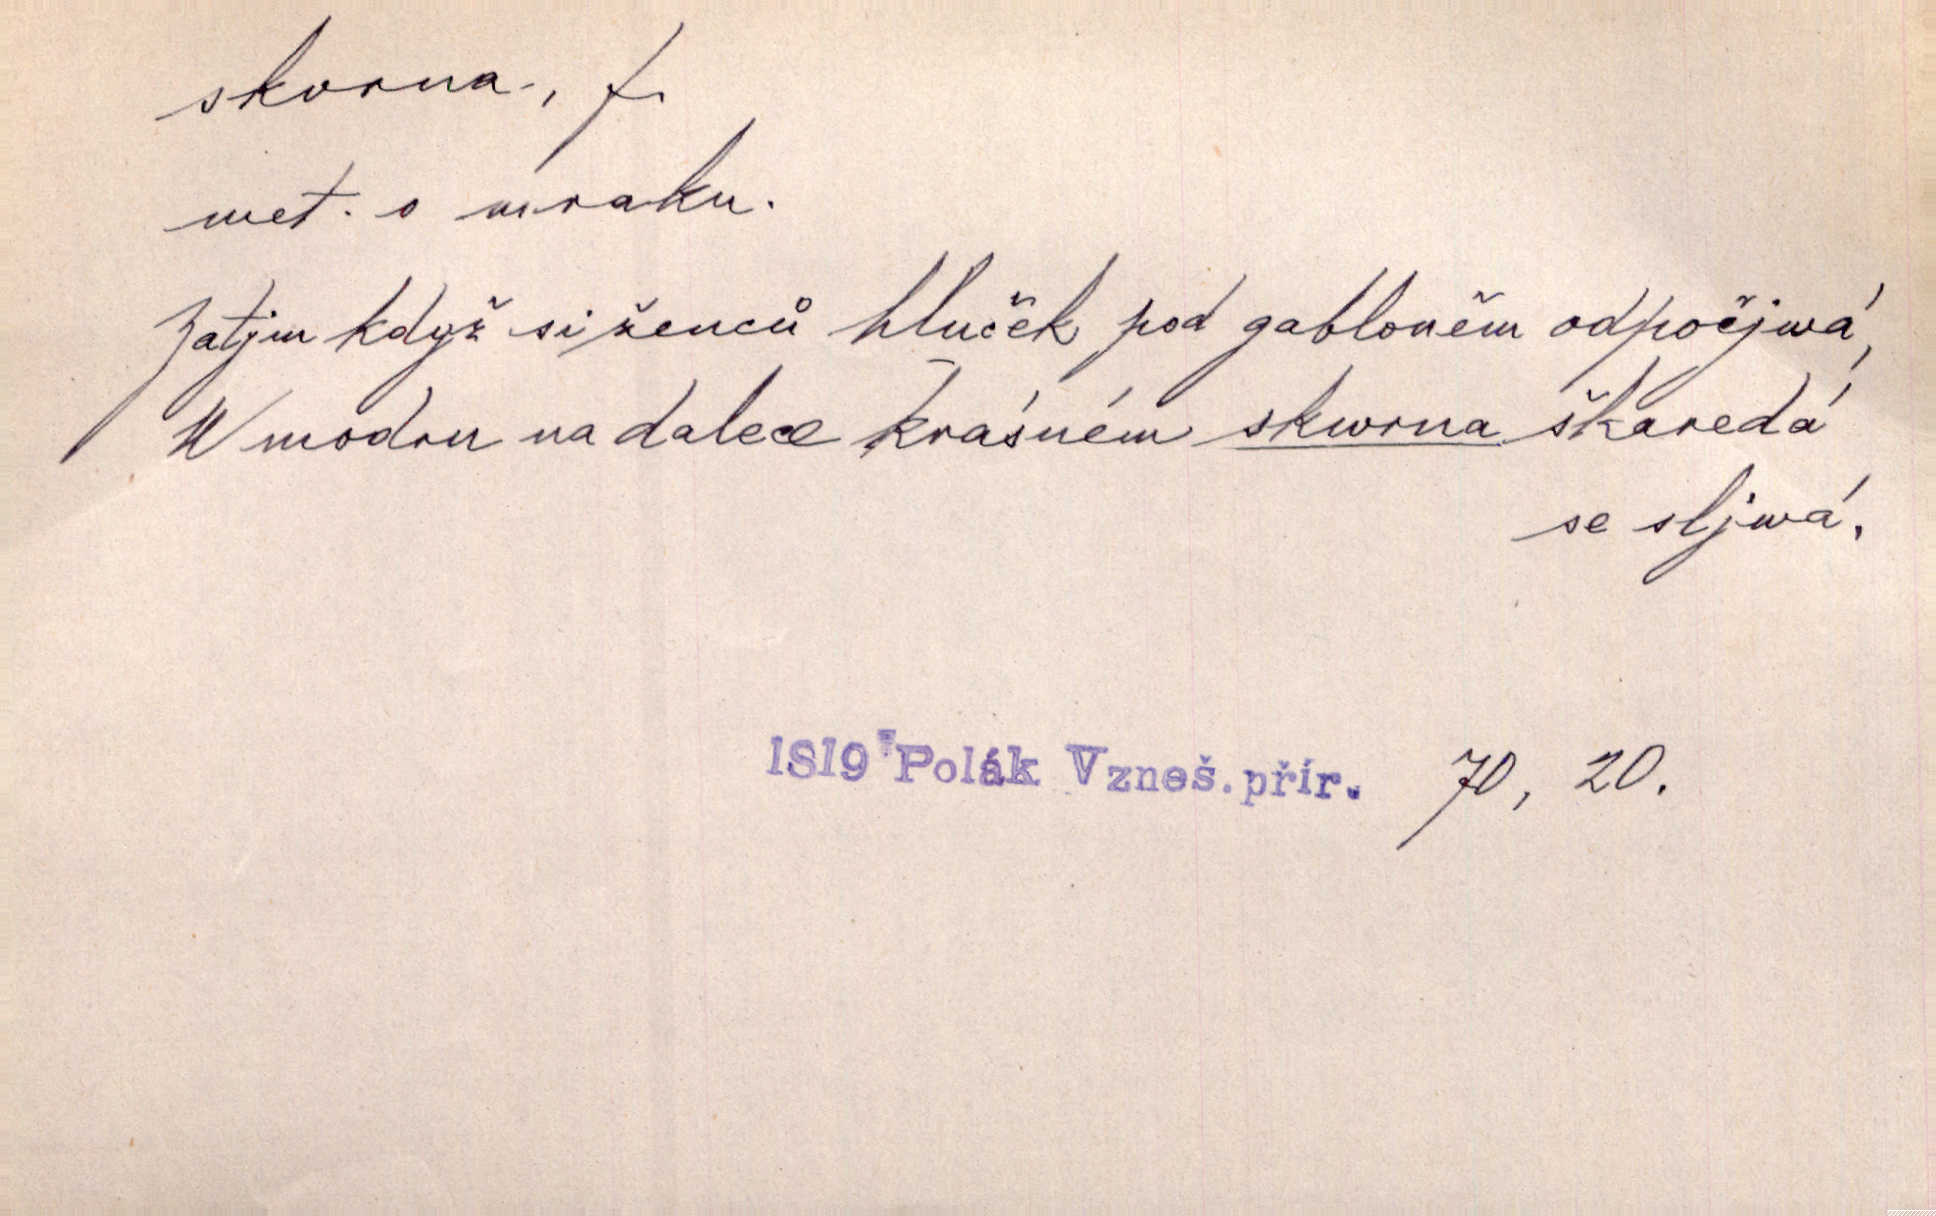 skvrna, f.
met. o mraku.
Zatjm když si ženců hluček pod gabloněm odpočjwá,
W modru na dalece krásném skwrna škaredá
se sljwá.
1819 Polák Vzneš. přír. 70, 20.